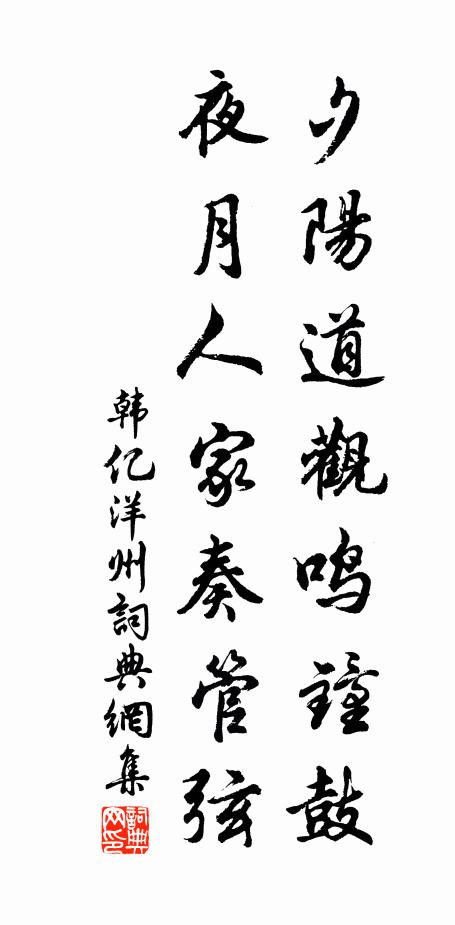 夕陽道觀鸣鐘鼓
夜月人家奏管弦
韩亿洋州詞典網集
詞典网印